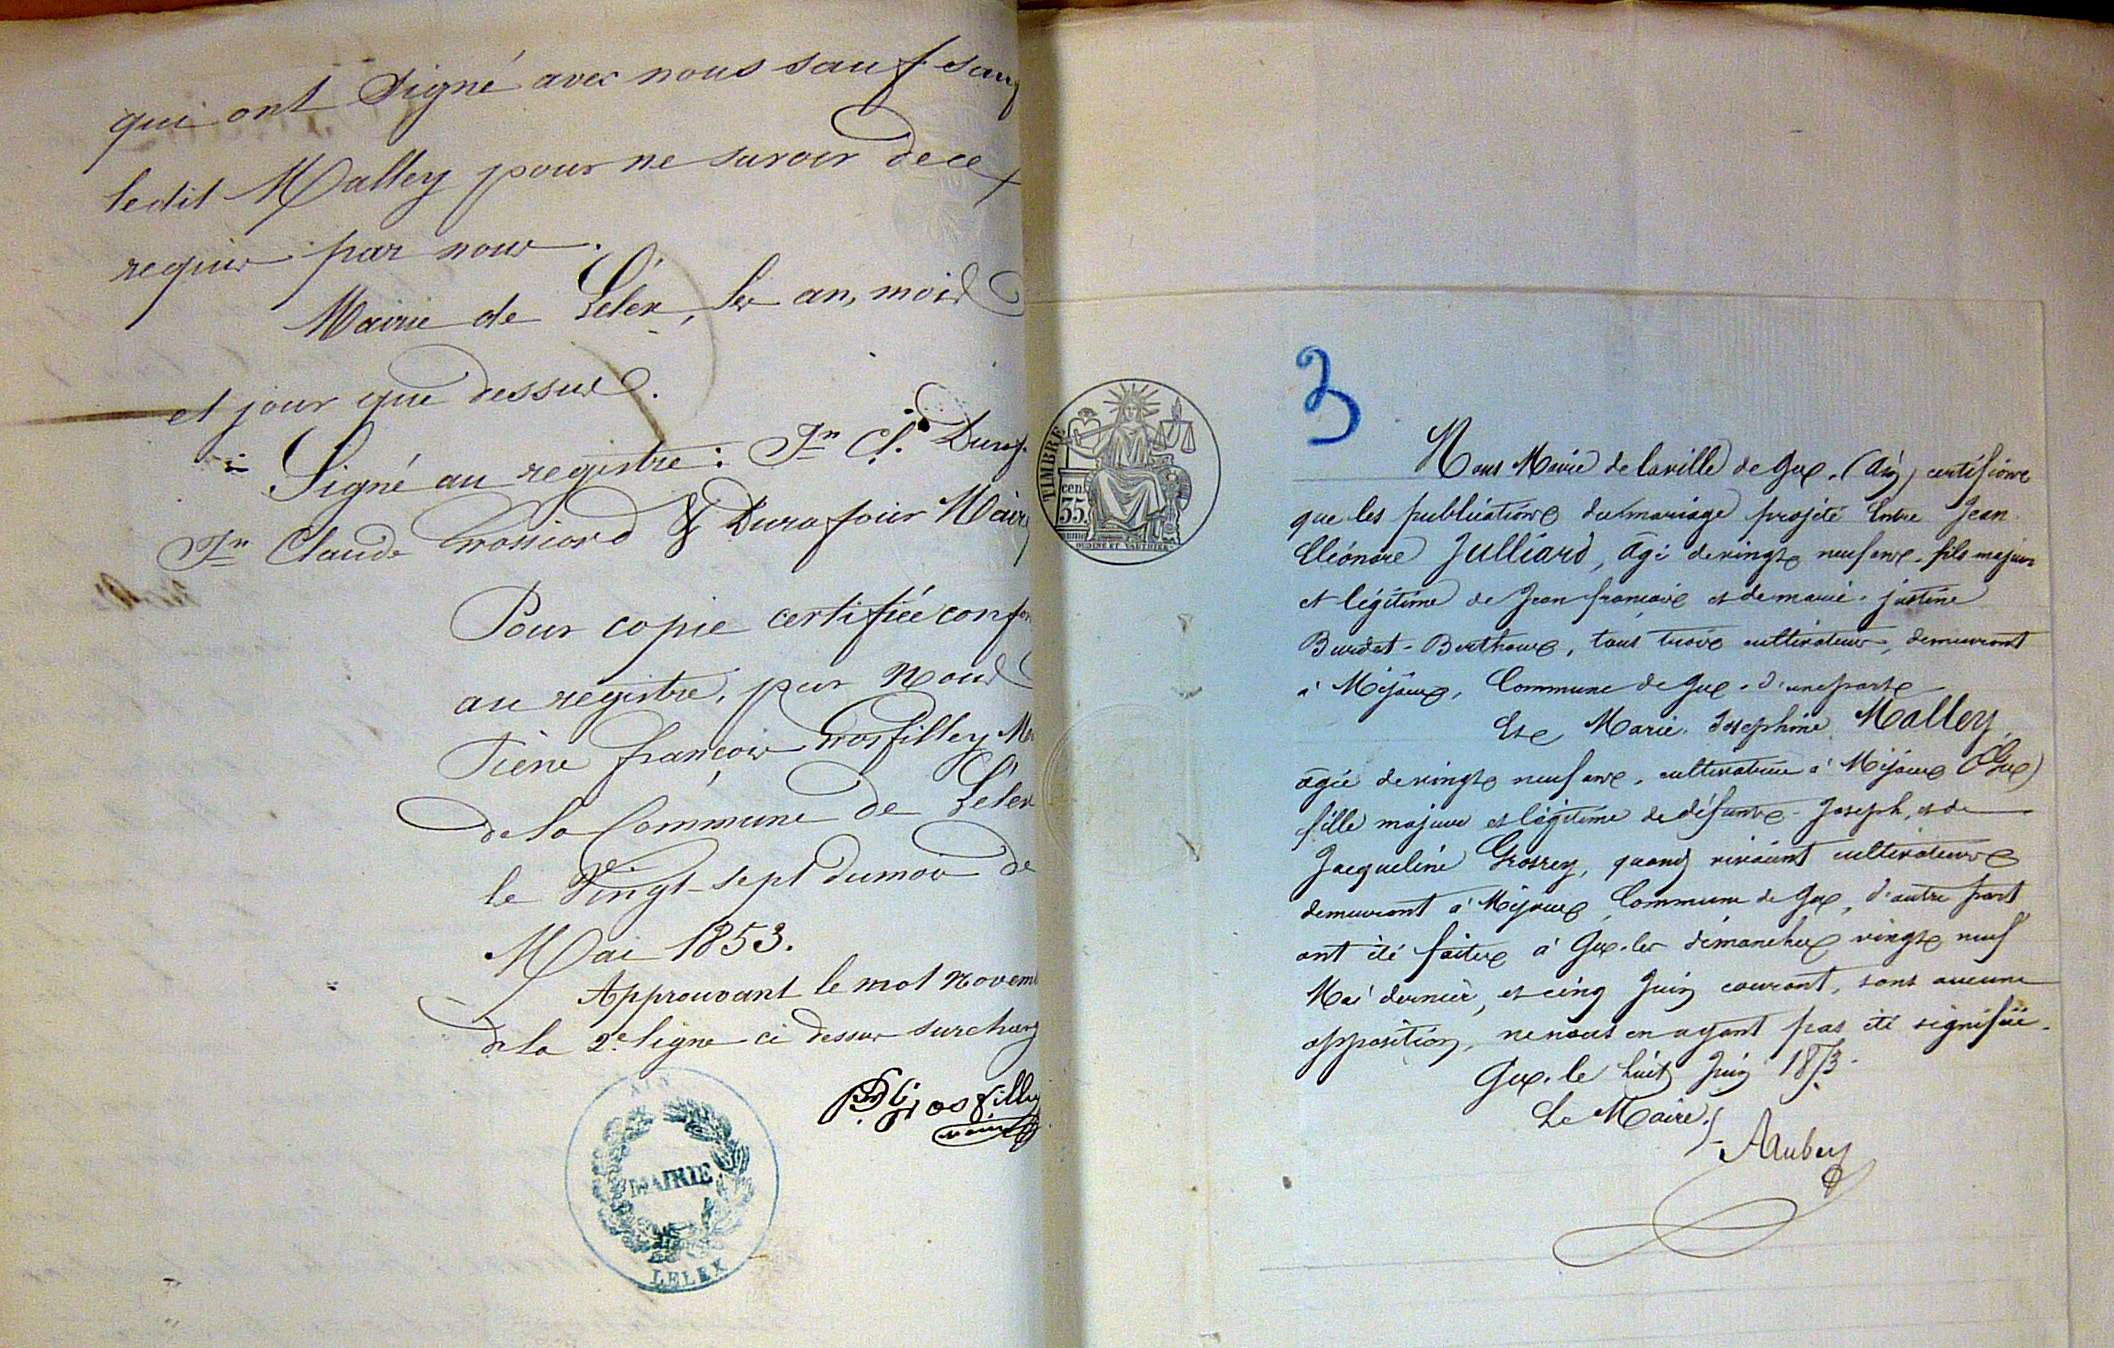 qui ont signé avec nous sauf
ledit Malley pour ne savoir de ce
requis par nous.
Mairie de Lélex, les an, mois
et jour que dessus.
Signé au registre: Jn Cl.
Jn Claude Grossiord & Durafour Maire
Pour copie certifiée
au registre, par Nous
françois Grosfilley
de la Commune de Lélex
le Vingt-sept du mois de
Mai 1853.
Approuvant le mot
de la 2e ligne ci dessus
Grosfilley
AIN
MAIRIE
LELEX
TIMBRE
cen.
35
OUDINE ET VAUTHIER
3
Nous Maire de la ville de Gex. (Ain) certifions
que les publications du mariage projeté entre Jean
Eléonore Julliard, âgé de vingt neuf ans, fils majeur
et légitime de Jean françois et de marie justine
Burdet-Berthoux, tous trois cultivateurs, demeurant
à Mijoux, Commune de Gex. d'une part
Et Marie Joséphine Malley
âgée de vingt neuf ans, cultivatrice à Mijoux (Gex)
fille majeure et légitime de défunts Joseph, et de
Jacqueline Grosrey, quand vivaient cultivateurs
demeurant à Mijoux, Commune de Gex, d'autre part
ont été faites à Gex. les dimanches vingt neuf
Mai dernier, et cinq Juin courant, sans aucune
opposition, ne nous en ayant pas été signifié.
Gex. le huit Juin
Le Maire